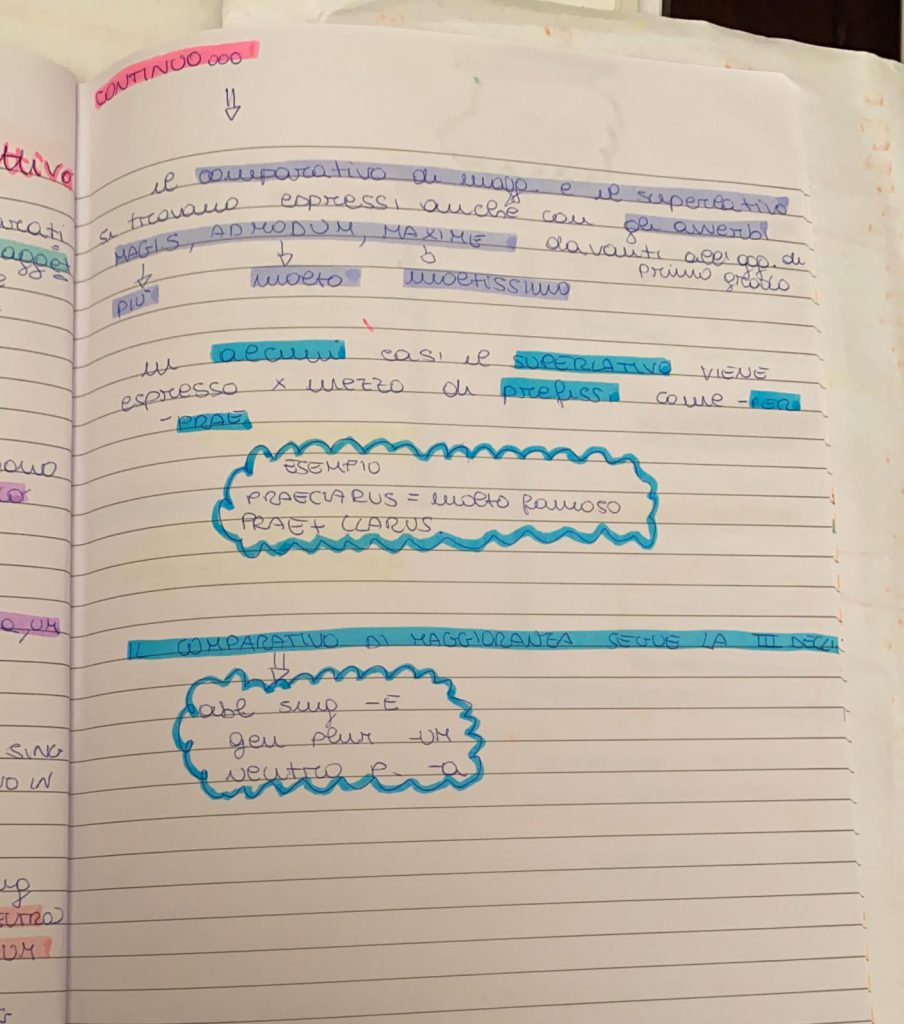 CONTINUO...
il comparativo di magg. e il superlativo
si trovano espressi anche con gli avverbi
MAGIS, ADMODUM, MAXIME davanti all'agg. di
primo grado
PIÙ molto moltissimo
in alcuni casi il SUPERLATIVO VIENE
espresso x mezzo di prefissi come -PER
-PRAE
ESEMPIO
PRAECLARUS = molto famoso
PRAE + CLARUS
IL COMPARATIVO DI MAGGIORANZA SEGUE LA III DECL:
abl sing -E
gen plur -UM
neutro p. -a
ttivo
arati
agget
e
ono
co
a, um
SING
VO IN
ng
EUTRO)
UM
G